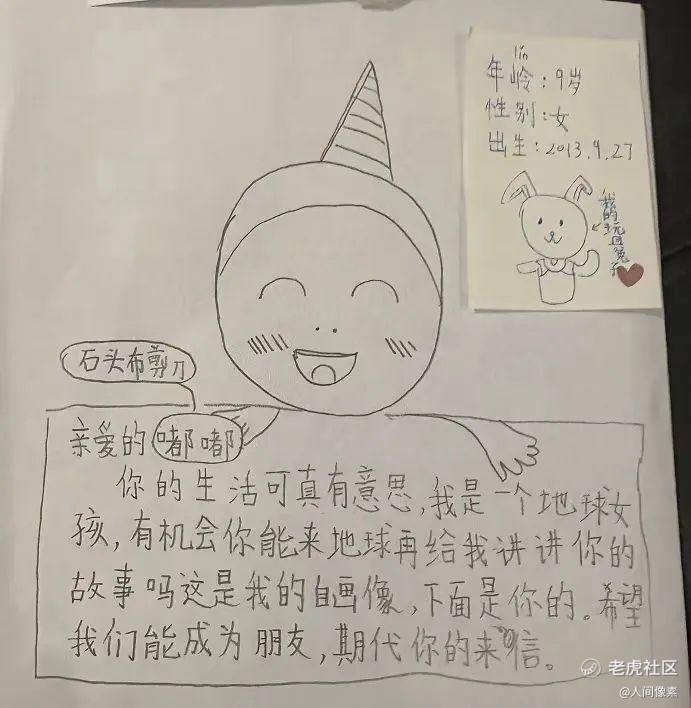 lín
年岭：9岁
性别：女
出生：2013.9.27
我的玩具兔子
石头布剪刀
亲爱的嘟嘟
你的生活可真有意思，我是一个地球女
孩，有机会你能来地球再给我讲讲你的
故事吗这是我的自画像，下面是你的。希望
我们能成为朋友，期代你的来信。
老虎社区
@人间像素